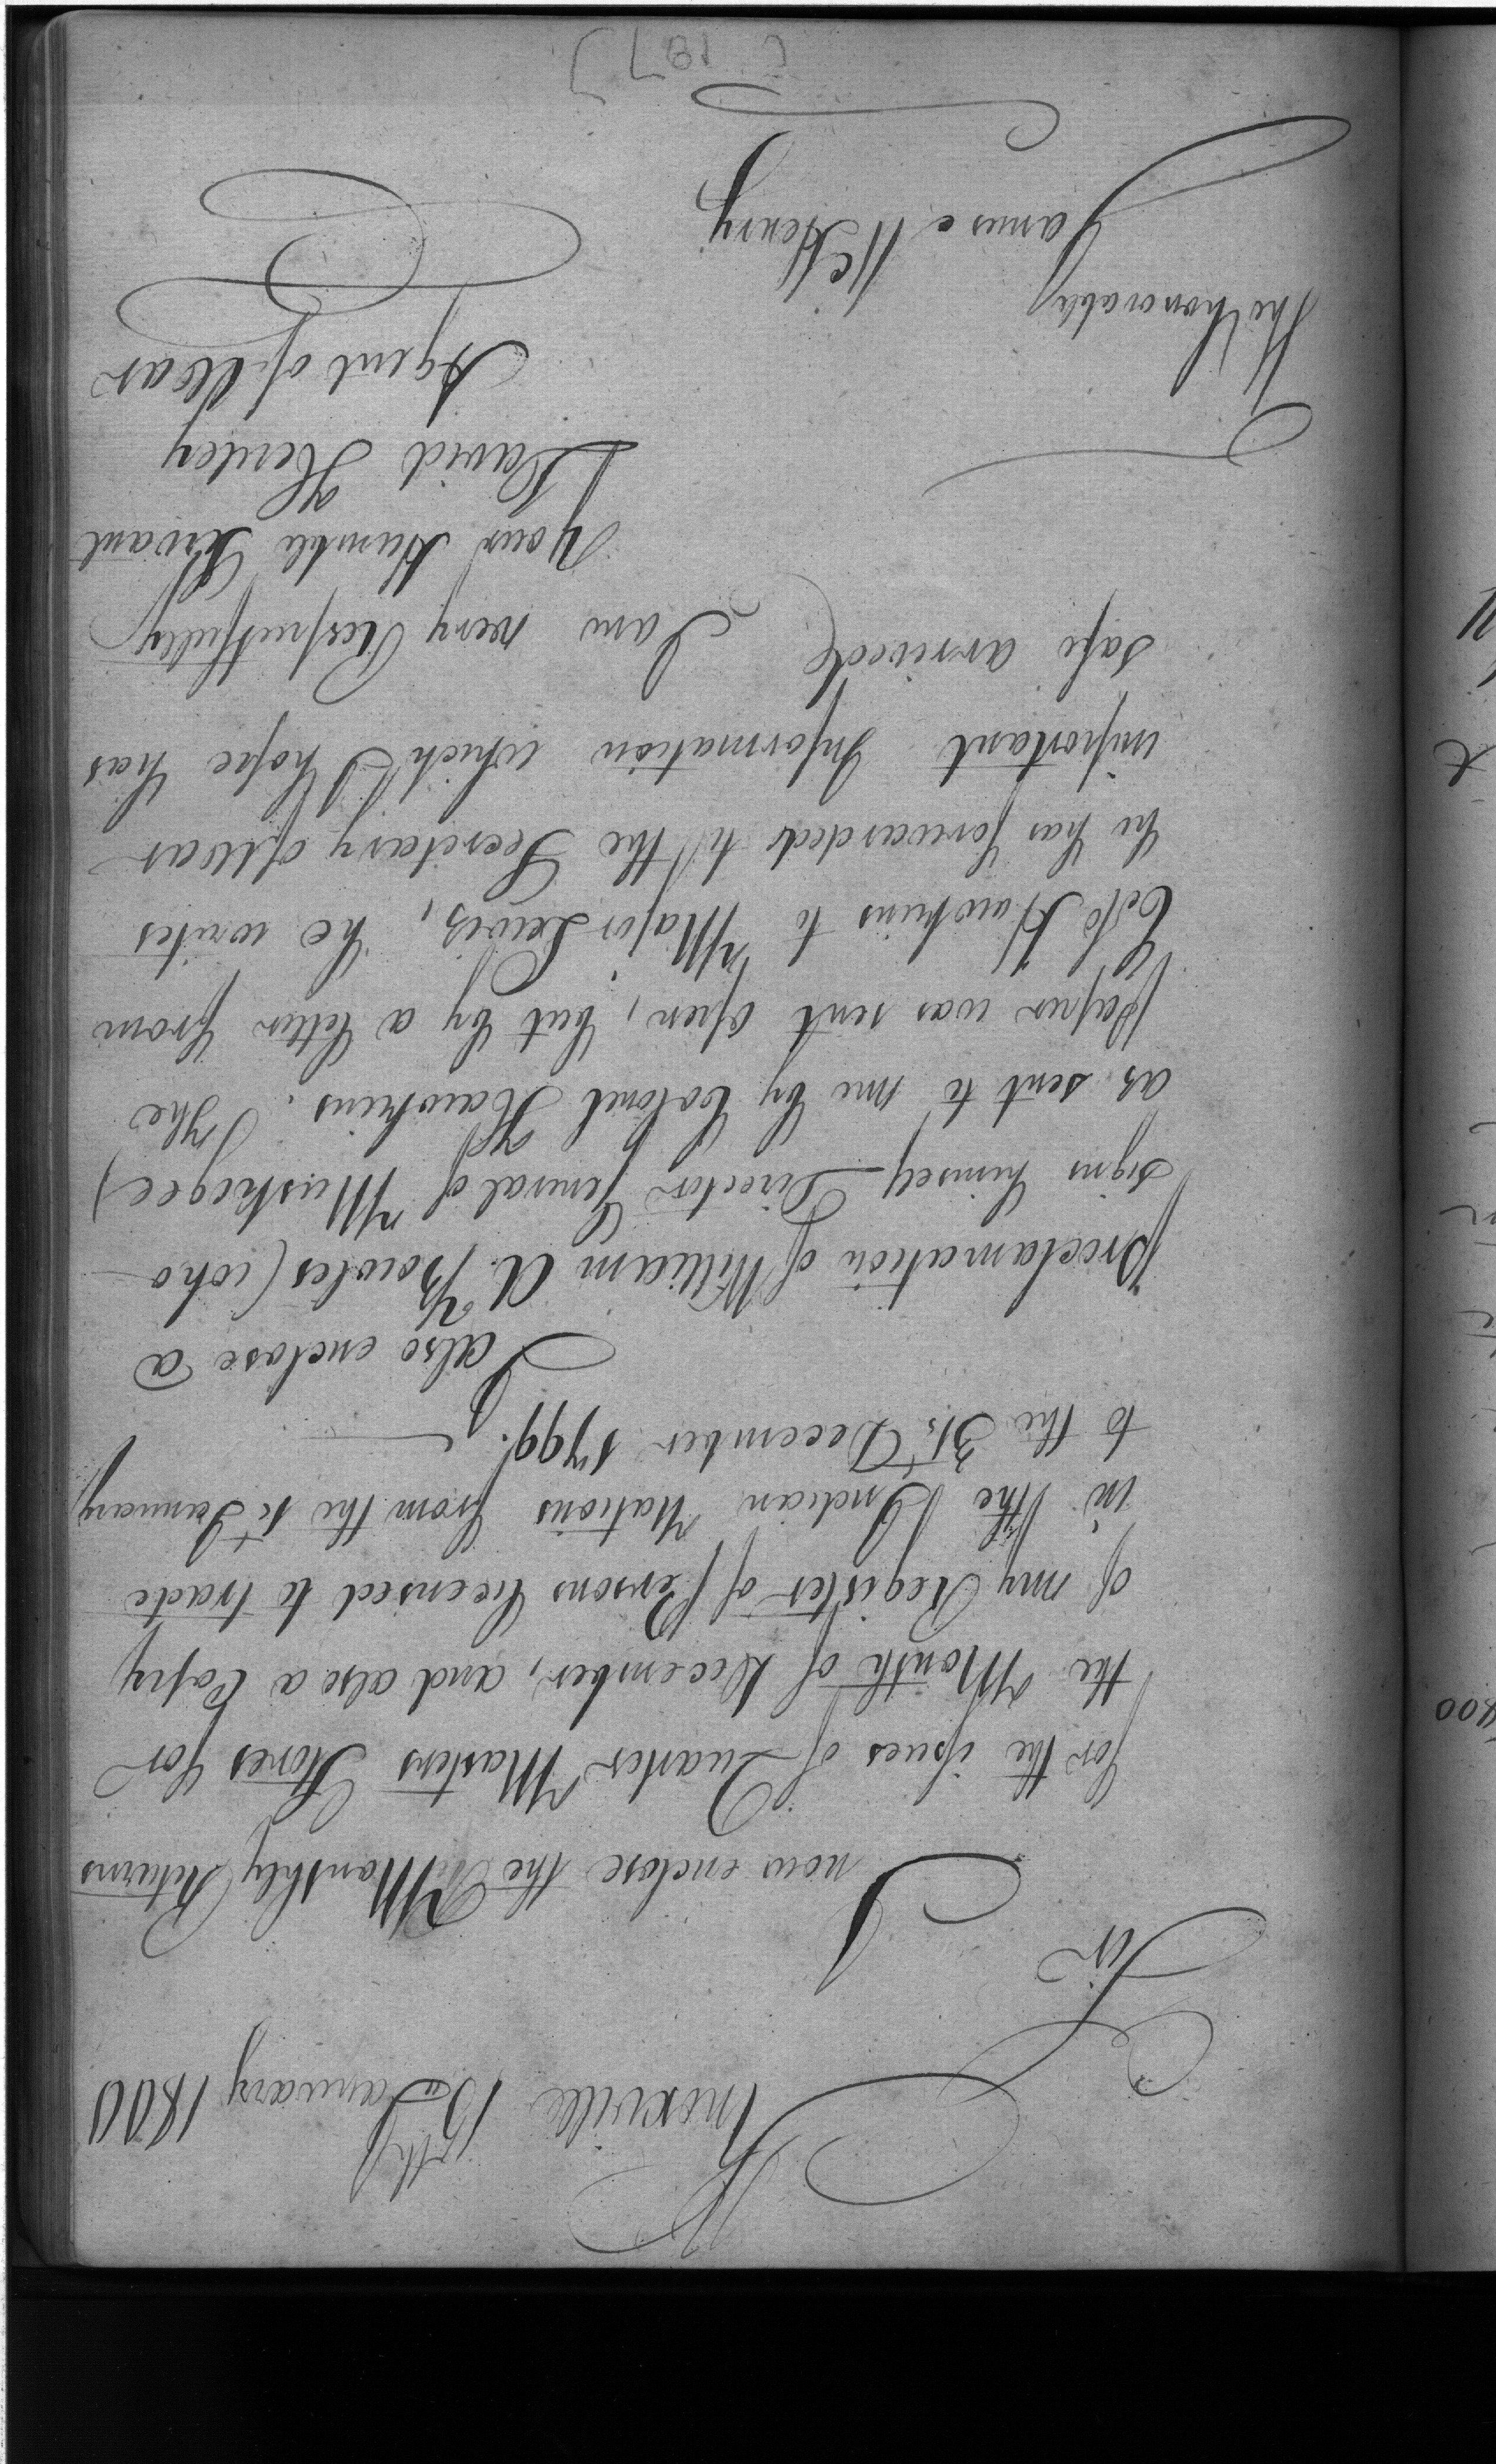 Knoxville 15th January 1800
Sir
I now enclose the Monthly Returns
for the issues of Quarter Masters Stores for
the Month of December, and also a Copy
of my Register of Persons licensed to trade
in the Indian Nations from the 1st January
to the 31st December 1799.
I also enclose a
proclamation of William A. Bowles (who
signs himself Director General of Muskogee)
as sent to me by Colonel Hawkins. The
Paper was sent open, but by a letter from
Colo. Hawkins to Major Lewis, he writes
he has forwarded to the Secretary of War
important Information which I hope has
safe arrived I am very Respectfully
Your Humble Servant
David Henley
Agent of War
The honorable
James McHenry
[187]